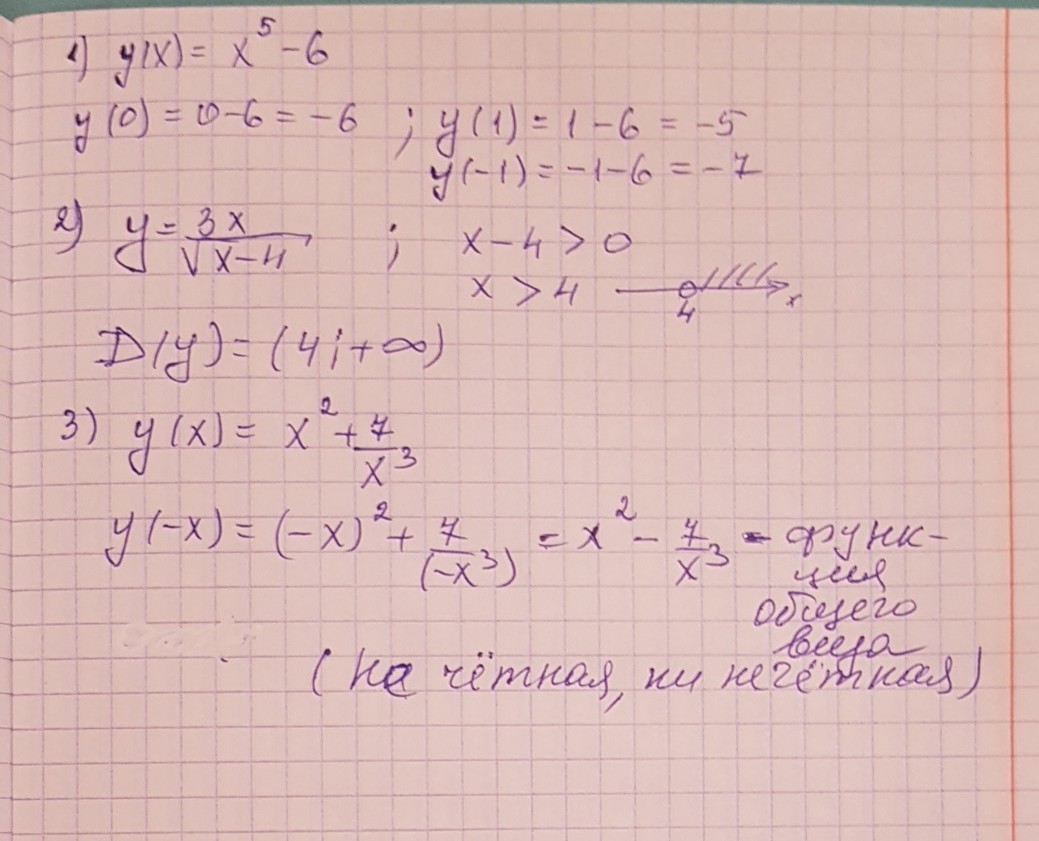 1) y(x) = x⁵ - 6
y(0) = 0-6 = -6 ; y(1) = 1-6 = -5
y(-1) = -1-6 = -7
2) y = 3x/√x-4 ; x-4 > 0
x > 4 4 x
D(y) = (4; +∞)
3) y(x) = x² + 7/x³
y(-x) = (-x)² + 7/(-x³) = x² - 7/x³ - функ-
ция
общего
вида
(не чётная, ни нечётная)